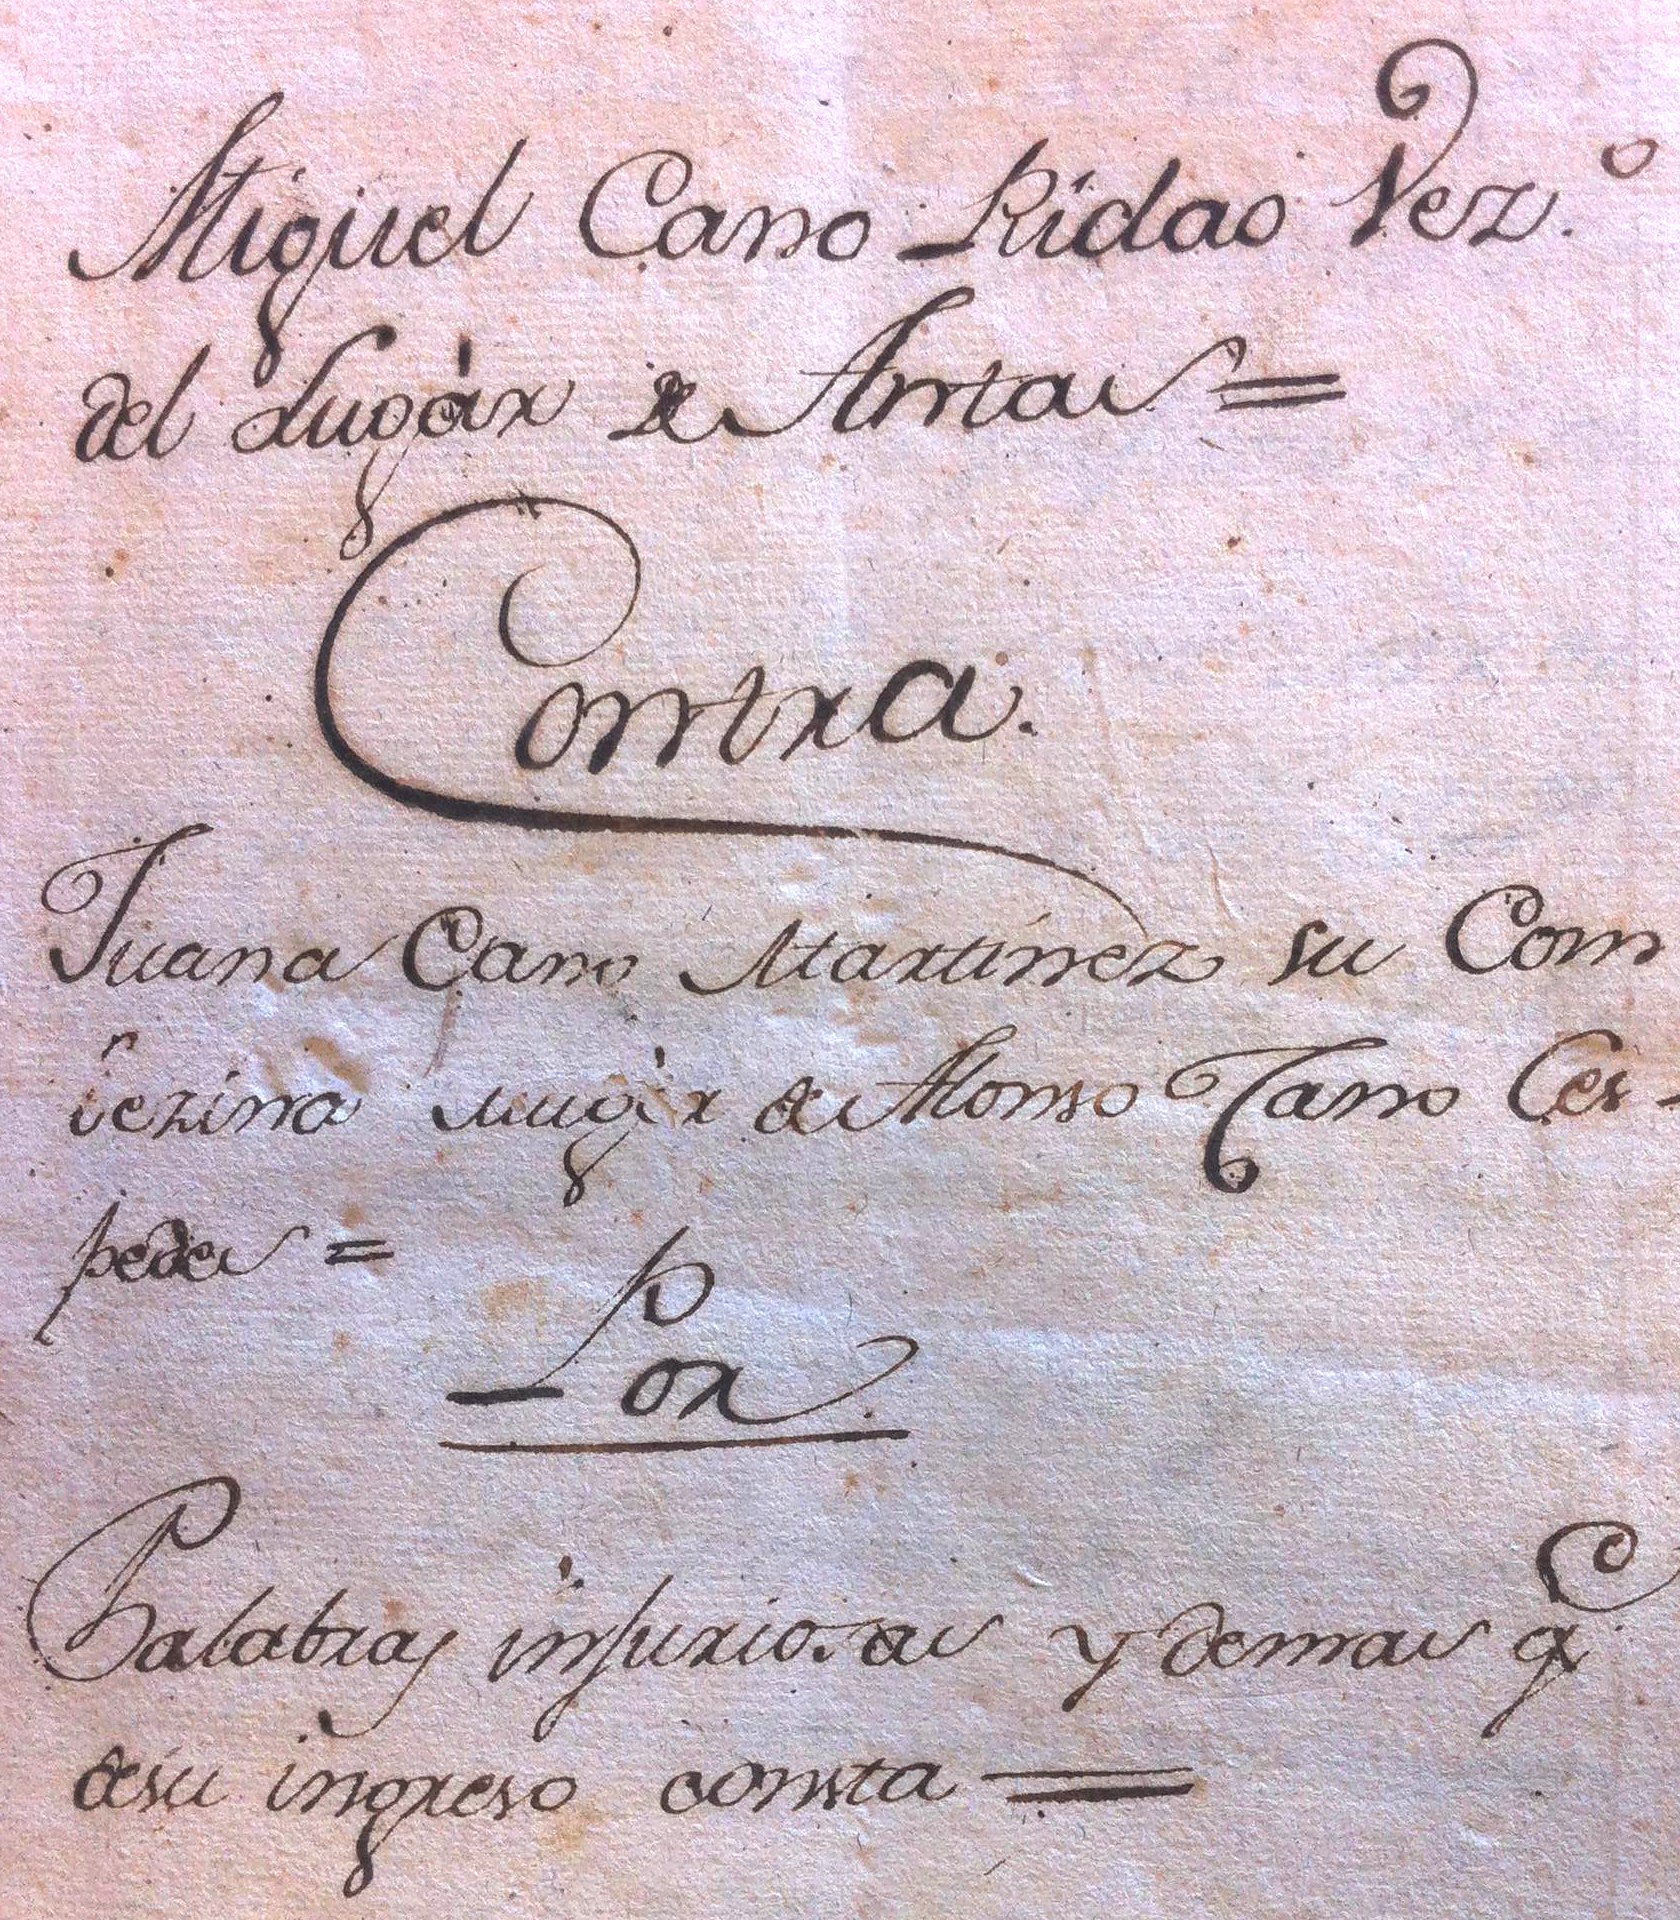 Miguel Cano Ridao Vez.º
del Lugàr de Antas =
Contra.
Juana Cano Martinez su Con
vezina mugèr de Alonso Cano Ces-
pedes =
- Por
Palabras injuriosas y demas q.e
de su ingreso consta =